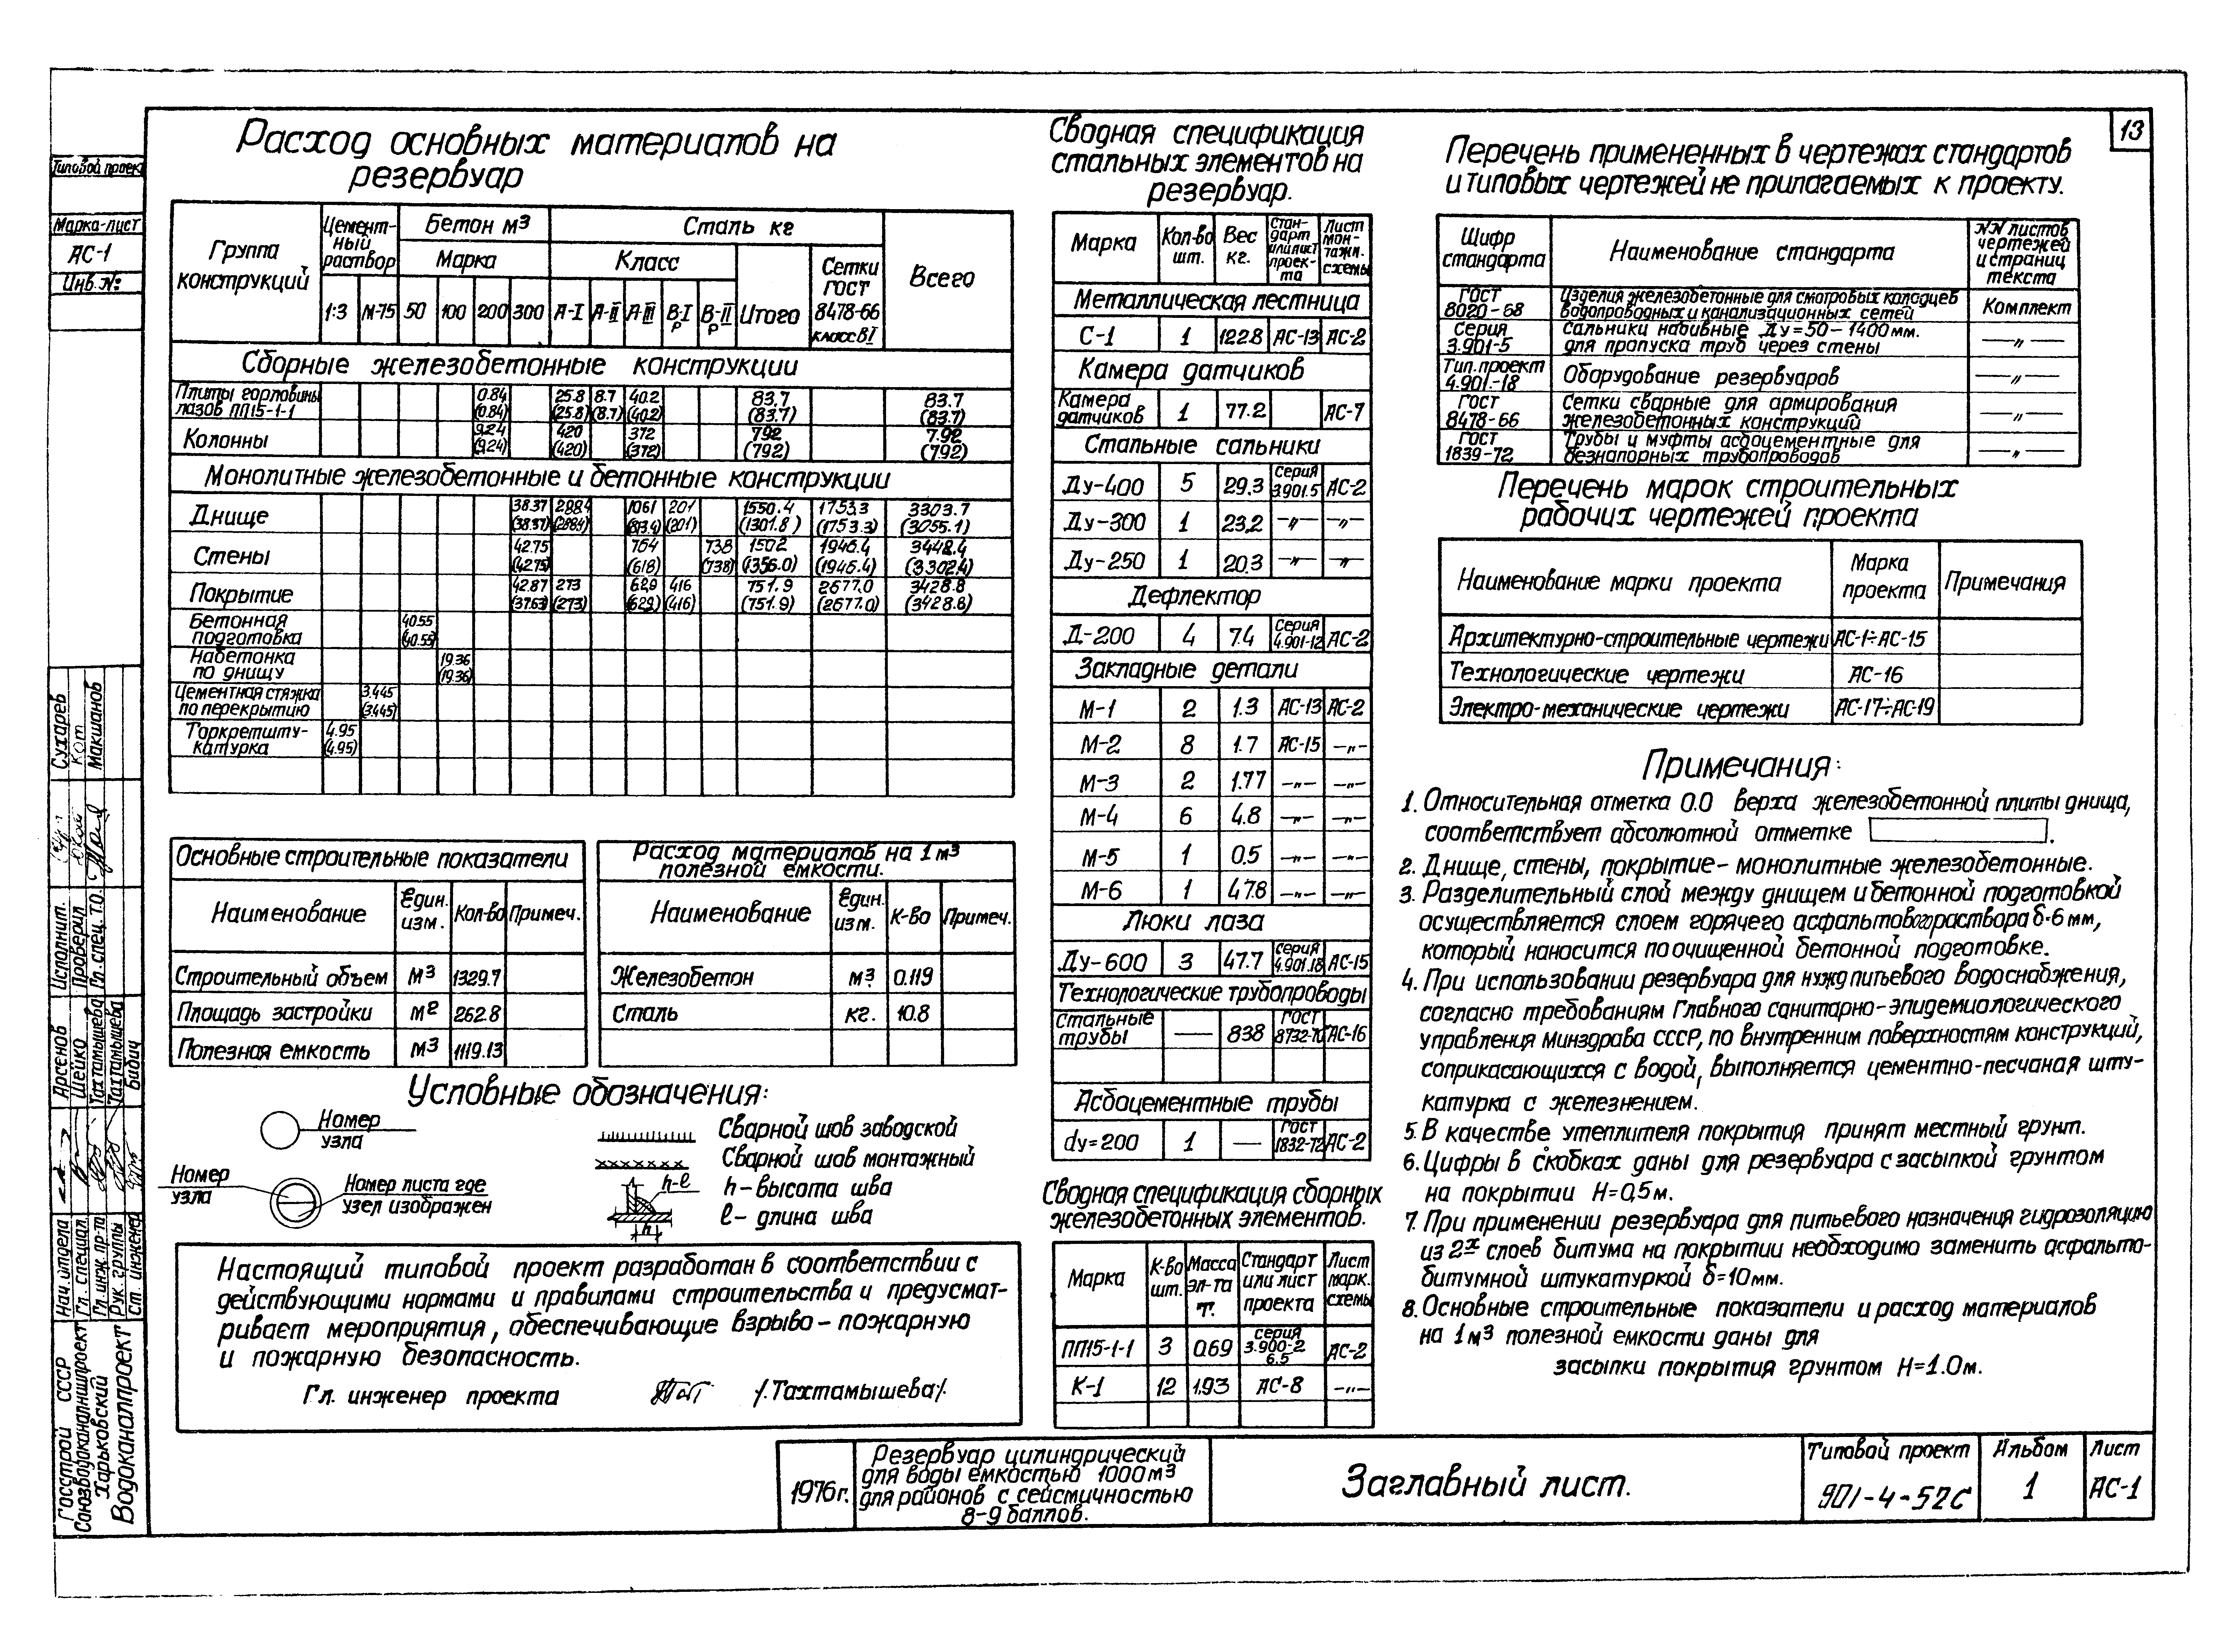 13
Типовой проект
Марка-лист
АС-1
Инв.№:
Расход основных материалов на
резервуар
Группа конструкций | Цементный раствор | Бетон м³ | Сталь кг | Всего
Марка | Класс | Итого | Сетки ГОСТ 8478-66 класс ВI
1:3 | М-75 | 50 | 100 | 200 | 300 | А-I | А-II | А-III | В-I р | В-II р
Сборные железобетонные конструкции
Плиты горловины лазов ПП15-1-1 | 0.84 (0.84) | 25.8 (25.8) | 8.7 (8.7) | 40.2 (40.2) | 83.7 (83.7) | 83.7 (83.7)
Колонны | 9.24 (9.24) | 420 (420) | 372 (372) | 792 (792) | 7.92 (792)
Монолитные железобетонные и бетонные конструкции
Днище | 38.37 (38.37) | 288.4 (288.4) | 1061 | 201 (201) | 1550.4 (1301.8) | 1753.3 (1753.3) | 3303.7 (3055.1)
Стены | 42.75 (42.75) | 764 (618) | 738 (738) | 1502 (1356.0) | 1946.4 (1946.4) | 3448.4 (3302.4)
Покрытие | 42.87 (37.63) | 273 (273) | 629 (629) | 416 (416) | 751.9 (751.9) | 2677.0 (2677.0) | 3428.8 (3428.8)
Бетонная подготовка | 40.55 (40.55)
Набетонка по днищу | 19.36 (19.36)
Цементная стяжка по перекрытию | 3.445 (3.445)
Торкретштукатурка | 4.95 (4.95)
Основные строительные показатели
Наименование | Един. изм. | Кол-во | Примеч.
Строительный объем | м³ | 1329.7
Площадь застройки | м² | 262.8
Полезная емкость | м³ | 1119.13
Расход материалов на 1 м³
полезной емкости.
Наименование | Един. изм. | К-во | Примеч.
Железобетон | м³ | 0.119
Сталь | кг. | 10.8
Условные обозначения:
Номер
узла
Номер
узла
Номер листа где
узел изображен
Сварной шов заводской
Сварной шов монтажный
h-ℓ
h
h – высота шва
ℓ – длина шва
Настоящий типовой проект разработан в соответствии с
действующими нормами и правилами строительства и предусмат-
ривает мероприятия, обеспечивающие взрыво-пожарную
и пожарную безопасность.
Гл. инженер проекта /.Тахтамышева/.
Сводная спецификация
стальных элементов на
резервуар.
Марка | Кол-во шт. | Вес кг. | Стандарт или лист проекта | Лист монтажн. схемы
Металлическая лестница
С-1 | 1 | 122.8 | АС-13 | АС-2
Камера датчиков
Камера датчиков | 1 | 77.2 | АС-7
Стальные сальники
Ду-400 | 5 | 29.3 | серия 3.901.5 | АС-2
Ду-300 | 1 | 23,2 | —„— | —„—
Ду-250 | 1 | 20.3 | —„— | —„—
Дефлектор
Д-200 | 4 | 7.4 | серия 4.901-12 | АС-2
Закладные детали
М-1 | 2 | 1.3 | АС-13 | АС-2
М-2 | 8 | 1.7 | АС-15 | —„—
М-3 | 2 | 1.77 | —„— | —„—
М-4 | 6 | 4.8 | —„— | —„—
М-5 | 1 | 0.5 | —„— | —„—
М-6 | 1 | 47.8 | —„— | —„—
Люки лаза
Ду-600 | 3 | 47.7 | серия 4.901.18 | АС-15
Технологические трубопроводы
Стальные трубы | — | 838 | ГОСТ 8732-70 | АС-16
Асбоцементные трубы
dу=200 | 1 | — | ГОСТ 1832-72 | АС-2
Сводная спецификация сборных
железобетонных элементов.
Марка | К-во шт. | Масса эл-та т. | Стандарт или лист проекта | Лист марк. схемы
ПП15-1-1 | 3 | 0.69 | серия 3.900-2 6.5 | АС-2
К-1 | 12 | 1.93 | АС-8 | —„—
Перечень примененных в чертежах стандартов
и типовых чертежей не прилагаемых к проекту.
Шифр стандарта | Наименование стандарта | NN листов чертежей и страниц текста
ГОСТ 8020-68 | Изделия железобетонные для смотровых колодцев водопроводных и канализационных сетей | Комплект
Серия 3.901-5 | Сальники набивные Ду=50-1400мм. для пропуска труб через стены | —„—
Тип. проект 4.901.-18 | Оборудование резервуаров | —„—
ГОСТ 8478-66 | Сетки сварные для армирования железобетонных конструкций | —„—
ГОСТ 1839-72 | Трубы и муфты асбоцементные для безнапорных трубопроводов | —„—
Перечень марок строительных
рабочих чертежей проекта
Наименование марки проекта | Марка проекта | Примечания
Архитектурно-строительные чертежи | АС-1÷АС-15
Технологические чертежи | АС-16
Электро-механические чертежи | АС-17÷АС-19
Примечания:
1. Относительная отметка 0.0 верха железобетонной плиты днища,
соответствует абсолютной отметке .
2. Днище, стены, покрытие – монолитные железобетонные.
3. Разделительный слой между днищем и бетонной подготовкой
осуществляется слоем горячего асфальтового раствора δ-6 мм,
который наносится по очищенной бетонной подготовке.
4. При использовании резервуара для нужд питьевого водоснабжения,
согласно требованиям Главного санитарно-эпидемиологического
управления Минздрава СССР, по внутренним поверхностям конструкций,
соприкасающихся с водой, выполняется цементно-песчаная шту-
катурка с железнением.
5. В качестве утеплителя покрытия принят местный грунт.
6. Цифры в скобках даны для резервуара с засыпкой грунтом
на покрытии Н=0,5м.
7. При применении резервуара для питьевого назначения гидроизоляцию
из 2х слоев битума на покрытии необходимо заменить асфальто-
битумной штукатуркой δ=10мм.
8. Основные строительные показатели и расход материалов
на 1м³ полезной емкости даны для
засыпки покрытия грунтом Н=1.0м.
1976г.
Резервуар цилиндрический
для воды емкостью 1000 м³
для районов с сейсмичностью
8-9 баллов.
Заглавный лист.
Типовой проект
901-4-52С
Альбом
1
Лист
АС-1
Госстрой СССР
Союзводоканалниипроект
Харьковский
Водоканалпроект
Нач. отдела Арсенов
Гл. специал. Шейко
Гл. инж. пр-та Тахтамышева
Рук. группы Тахтамышева
Ст. инженер Бабич
Исполнит. Сухарев
Проверил Кот
Гл. спец. Т.О. Макшанов